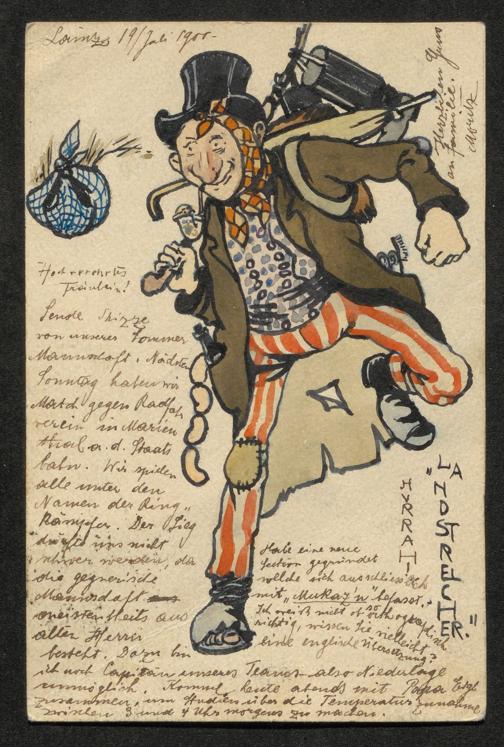 Lainz 19/Juli 1900-
Herzlichen Gruss
an Familie.
Moritz
Hochverehrtes
Fräulein!
Sende Skizze
von unserer Sommer
Mannschaft. Nächsten
Sonntag haben wir
Match gegen Radfah
verein in Marien
thal a. d. Staats
bahn. Wir spielen
alle unter den
Namen der Ring-
kämpfer. Der Sieg
dürfte uns nicht
schwer werden, da
die gegnerische
Mannschaft
meistentheils aus
alten Herrn
besteht. Dazu bin
ich noch Capitän unseres Teams - also Niederlage
unmöglich. Komme heute abends mit Papa
zusammen, um Studien über die Temperaturzunahme
zwischen 3 und 4 Uhr morgens zu machen.
Habe eine neue
Section gegründet
welche sich ausschliesslich
mit "Mukazu" befasst.
Ich weiß nicht ob orthographisch
richtig, wissen Sie vielleicht
eine englische Übersetzung?
HURRAH!
"LANDSTREICHER."